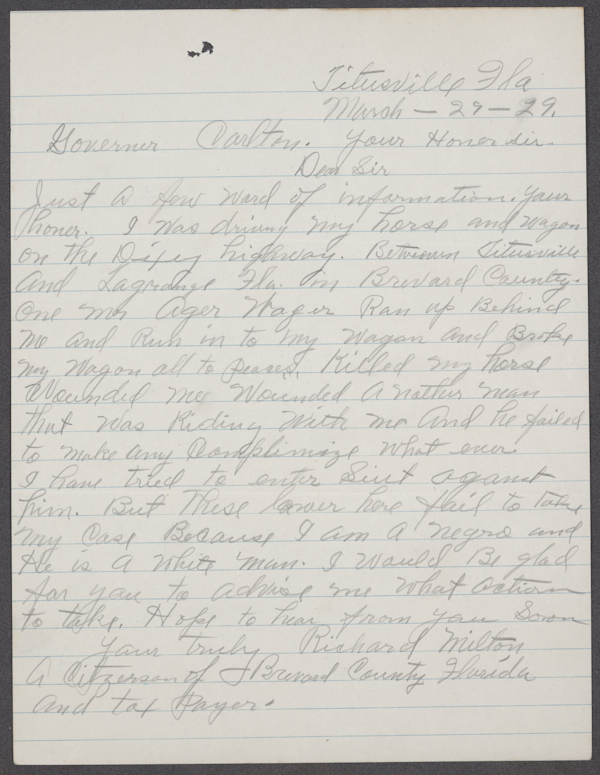 Titusville Fla
March - 29 - 29.
Governer Carlton. Your Honer sir.
Dear Sir
Just a few word of information. Your
honer. I was driving my horse and wagon
on the Dixey highway. Between Titusville
and Lagrange Fla. in Brevard County.
One mr Ager Wager Ran up Behind
me and Run in to my wagon and Broke
my wagon all to peases, Killed my horse
Wounded me wounded a nother man
that was Riding with me and he failed
to make any Complimize what ever
I have tried to enter Siut aganst
him. But these lawer here fail to take
my Case Because I am a negro and
He is a white man. I would Be glad
for you to advise me what action
to take. Hope to hear from you Soon
Your truly Richard Milton
A Citzerson of Brevard County Florida
and tax Payer.